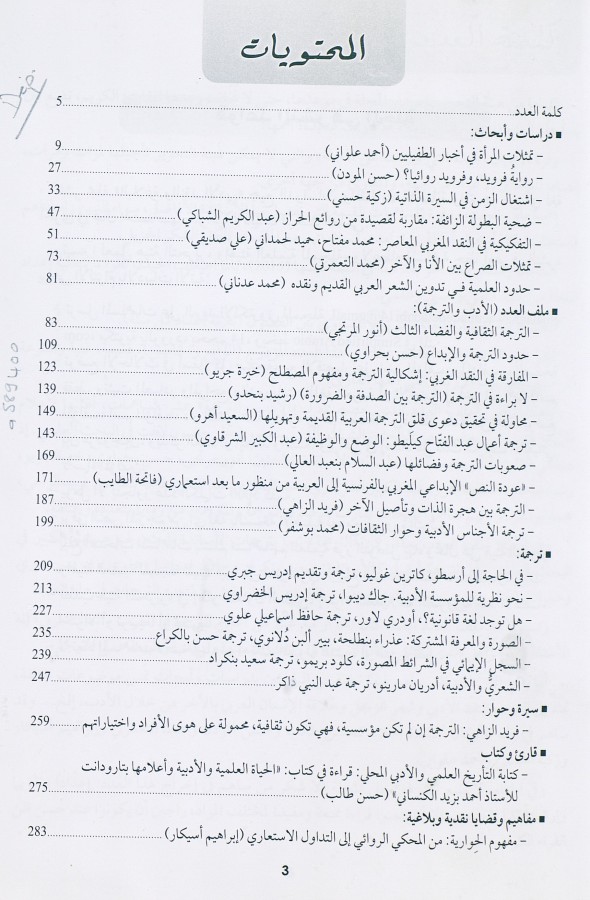 المحتويات
كلمة العدد 5
▪ دراسات وأبحاث:
– تمثلات المرأة في أخبار الطفيليين (أحمد علواني) 9
– روايةُ فرويد، وفرويد روائيا؟ (حسن المودن) 27
– اشتغال الزمن في السيرة الذاتية (زكية حسني) 33
– ضحية البطولة الزائفة: مقاربة لقصيدة من روائع الحراز (عبد الكريم الشباكي) 47
– التفكيكية في النقد المغربي المعاصر: محمد مفتاح، حميد لحمداني (علي صديقي) 51
– تمثلات الصراع بين الأنا والآخر (محمد التعمرتي) 73
– حدود العلمية فـي تدوين الشعر العربي القديم ونقده (محمد عدناني) 81
▪ ملف العدد (الأدب والترجمة):
– الترجمة الثقافية والفضاء الثالث (أنور المرتجي) 83
– حدود الترجمة والإبداع (حسن بحراوي) 109
– المفارقة في النقد الغربي: إشكالية الترجمة ومفهوم المصطلح (خيرة جريو) 123
– لا براءة في الترجمة (الترجمة بين الصدفة والضرورة) (رشيد بنحدو) 139
– محاولة في تحقيق دعوى قلق الترجمة العربية القديمة وتهويلها (السعيد أهرو) 149
– ترجمة أعمال عبد الفتّاح كيليطو: الوضع والوظيفة (عبد الكبير الشرقاوي) 143
– صعوبات الترجمة وفضائلها (عبد السلام بنعبد العالي) 169
– «عودة النص» الإبداعي المغربي بالفرنسية إلى العربية من منظور ما بعد استعماري (فاتحة الطايب) 171
– الترجمة بين هجرة الذات وتأصيل الآخر (فريد الزاهي) 187
– ترجمة الأجناس الأدبية وحوار الثقافات (محمد بوشفر) 199
▪ ترجمة:
– في الحاجة إلى أرسطو، كاترين غوليو، ترجمة وتقديم إدريس جبري 209
– نحو نظرية للمؤسسة الأدبية. جاك ديبوا، ترجمة إدريس الخضراوي 213
– هل توجد لغة قانونية؟، أودري لاور، ترجمة حافظ اسماعيلي علوي 227
– الصورة والمعرفة المشتركة: عذراء بنطلحة، بيير ألبن دُلانوي، ترجمة حسن بالكراع 235
– السجل الإيمائي في الشرائط المصورة، كلود بريمو، ترجمة سعيد بنكراد 239
– الشعريُّ والأدبية، أدريان مارينو، ترجمة عبد النبي ذاكر 247
▪ سيرة وحوار:
– فريد الزاهي: الترجمة إن لم تكن مؤسسية، فهي تكون ثقافية، محمولة على هوى الأفراد واختياراتهم 259
▪ قارئ وكتاب
– كتابة التأريخ العلمي والأدبي المحلي: قراءة في كتاب: «الحياة العلمية والأدبية وأعلامها بتارودانت
للأستاذ أحمد بزيد الكنساني» (حسن طالب) 275
▪ مفاهيم وقضايا نقدية وبلاغية:
– مفهوم الحِوارية: من المحكي الروائي إلى التداول الاستعاري (إبراهيم أسيكار) 283
3